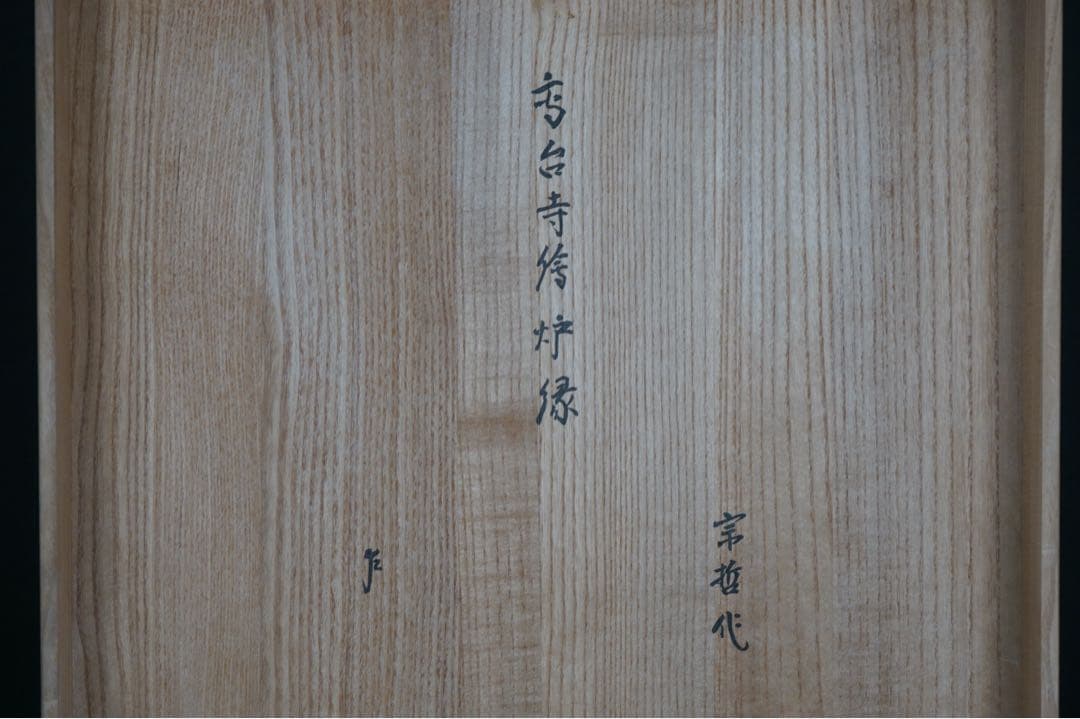 高台寺繪炉縁
宗哲作